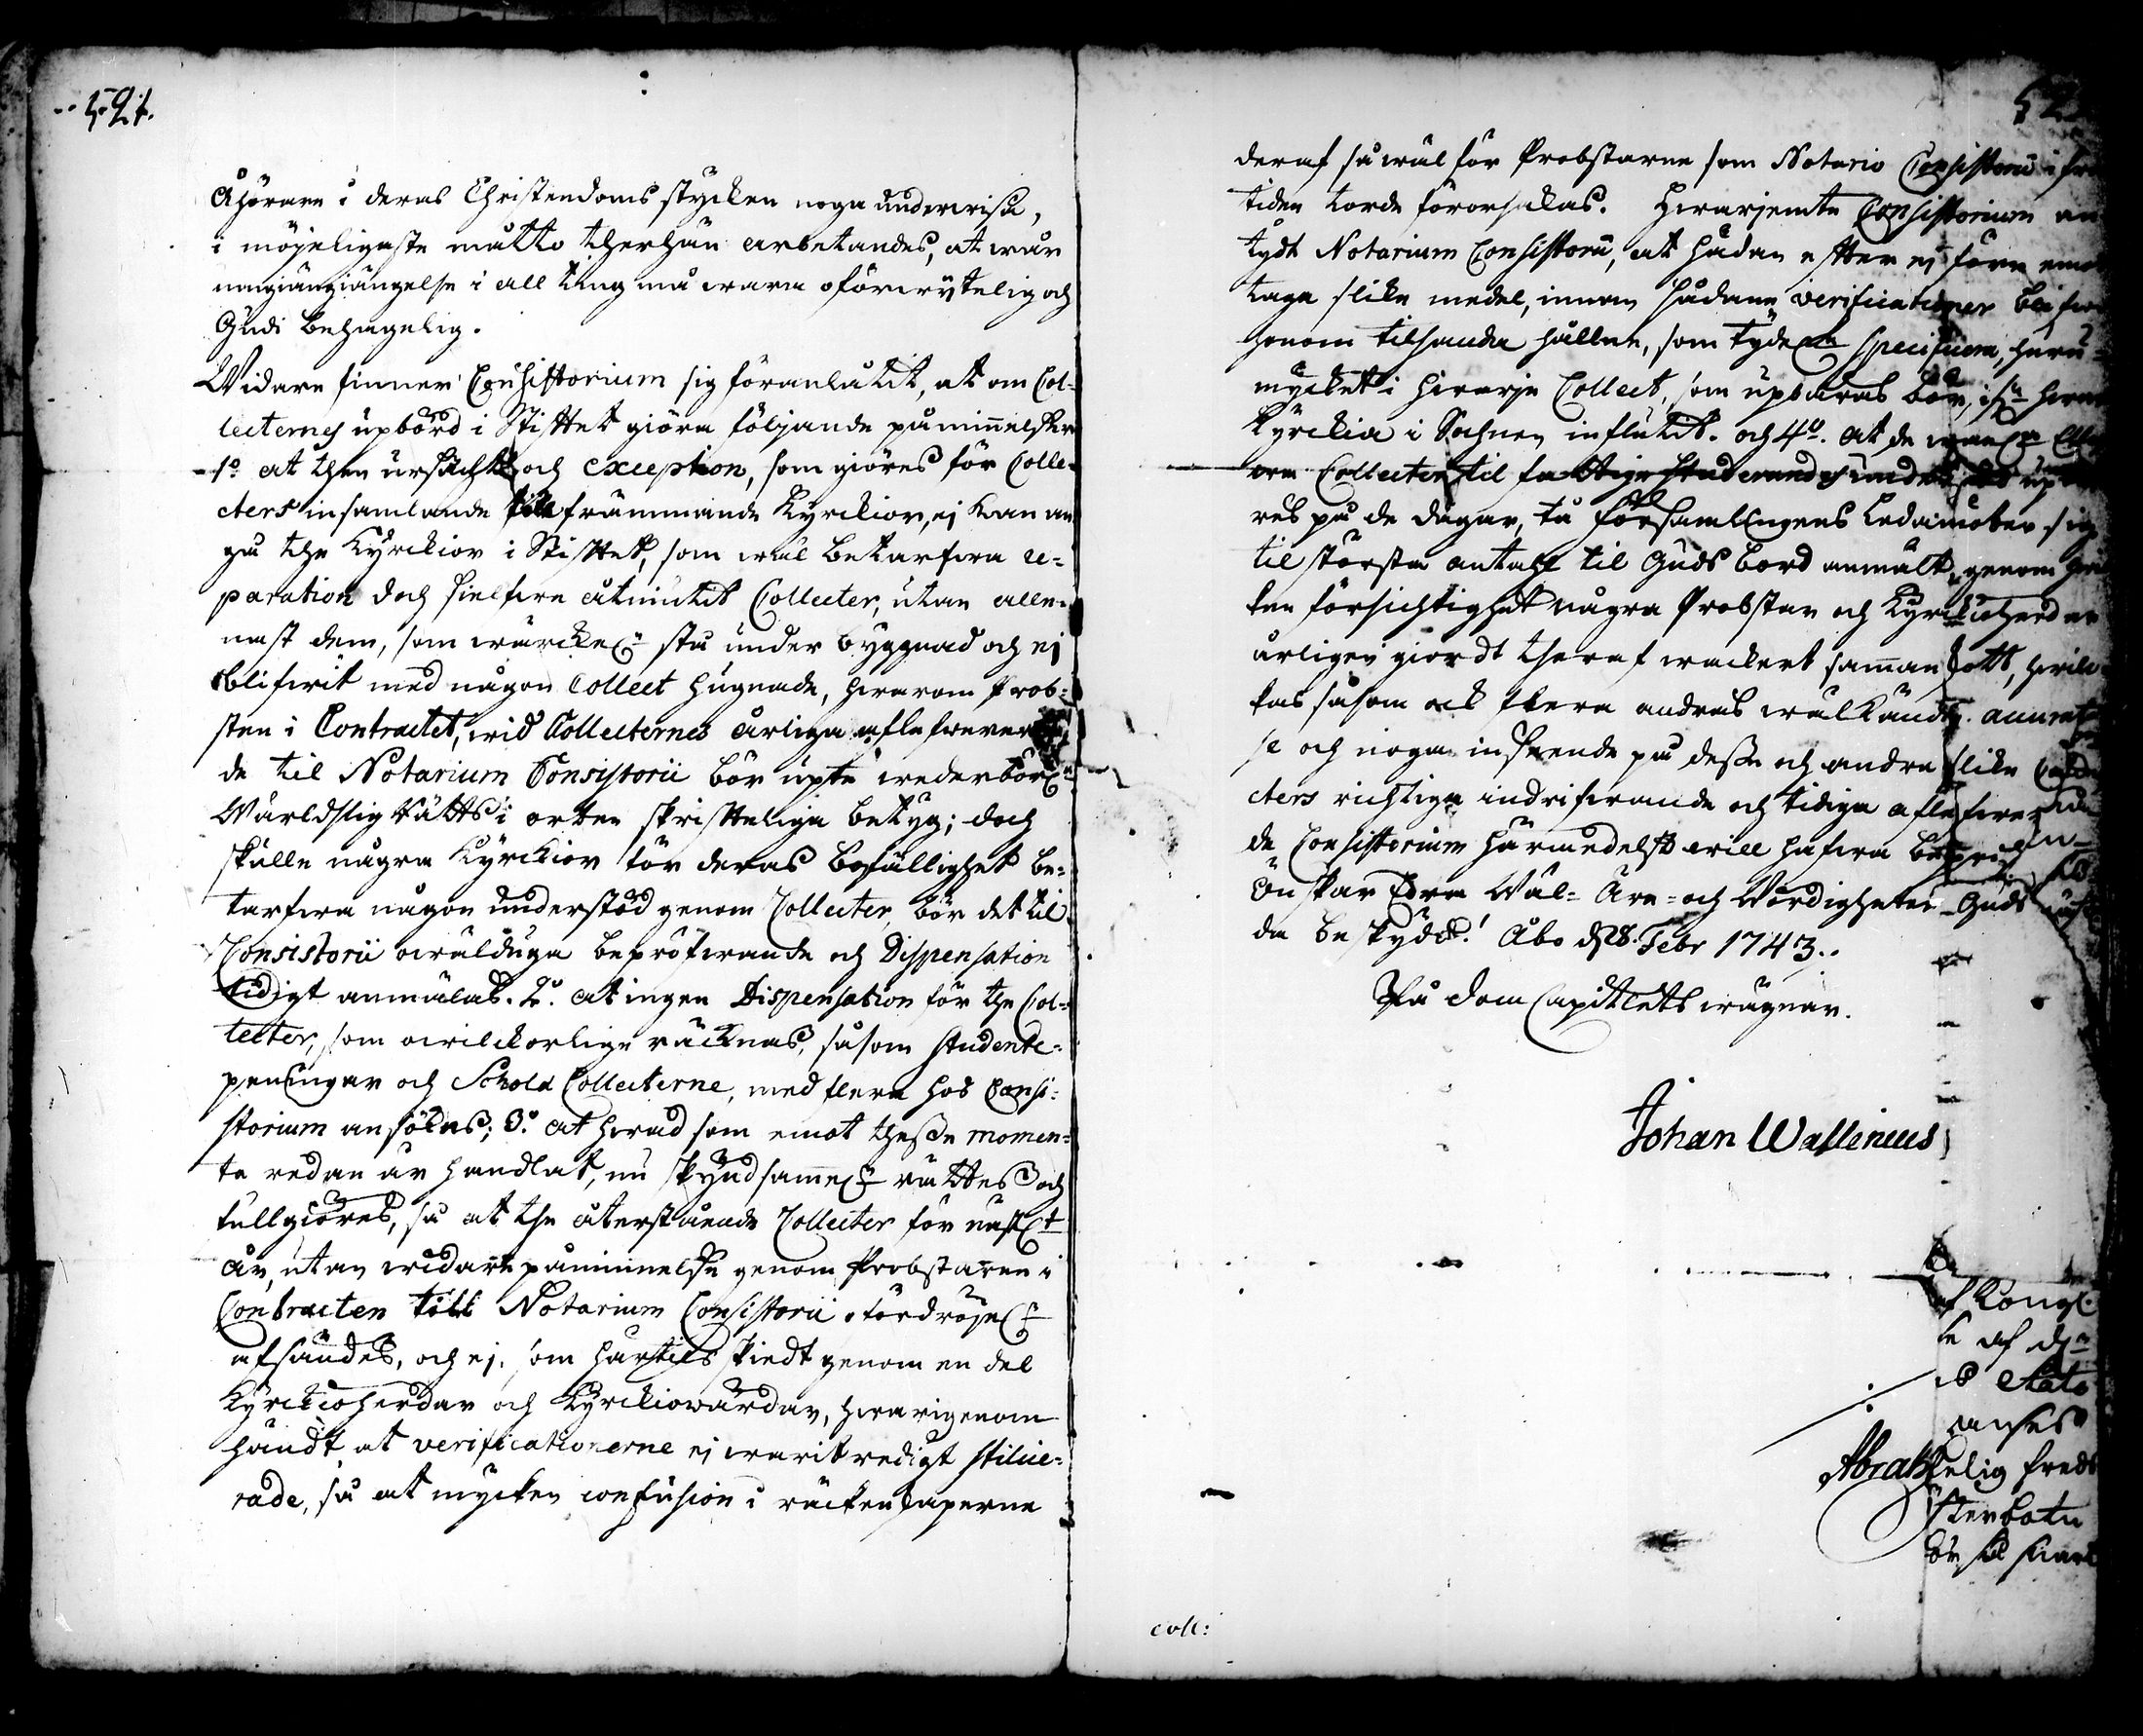 521.
Åhörare i deras Christendoms stycken noga underwisa,
i möjeligaste måtto therhän arbetandes, at wår
umgiängiängelse i all ting må wara oförwitelig och
Gudi behagelig.
Widare finner Consistorium sig föranlåtit, at om Col-
lecternes upbörd i Stifftet giöra följande påminnelser
1o at then ursächt och exception, som giöres för Colle-
cters insamlande till främmande Kyrckior, ej kan an-
gå the Kyrckior i Stifftet, som wäl betarfwa re-
paration doch sielfwa åtniutit Collecter, utan alle-
nast dem, som wärckel:n stå under byggnad och ej
blifwit med någon Collect hugnade, hwarom Prob-
sten i Contractet, wid Collecternes årliga aflefwereran-
de til Notarium Consistorii bör upte wederbörl:n
Wärldslig Rätts i orten skrifftelige betyg; doch
skulle några Kyrckior för deras bofällighet be-
tarfwa någon understöd genom Collecter, bör det til
Consistorii owälduga bepröfwande och Dispensation
tidigt anmälas. 2o. at ingen Dispensation för the Col-
lecter, som owilckorlige räcknas, såsom studente-
penningar och Schola Collecterne, med flera hos Consi-
storium ansökes; 3o. at hwad som emot thesse momen-
ta redan är handlat, nu skyndsammel:n rättes och
fullgiöres, så at the återstående Collecter för näst:t
åhr, utan widare påminnelse genom Probstarne i
Contracten till Notarium Consistorii ofördröjel:n
afsändes, och ej, som härtils skiedt genom en del
Kyrckioherdar och Kyrckiowärdar, hwarigenom
händt at verificationerne ej warit redigt stilise-
rade, så at mycken confusion i räckenskaperne
52
deraf så wäl för Probstarne som Notario Consistorii i fram
tiden torde förorsakas. Hwarjemte Consistorium an
tydt Notarium Consistorii, at hädan effter ej förr emot
taga slike medel, innan sådane verificationer blifwa
honom tilhanda hållne, som tydel:n specificera, huru
mycket i hwarje Collect, som upbäras bör, i s:n hwar
Kyrckia i Sochnen influtit. och 4o. at de
Collecter til fattige studerandes
res på de dagar, tå församlingens Ledamöter sig
til största antahl til Guds bord anmält, genom hwil
ken försichtighet några Probstar och Kyrckioherdar
årligen giordt theraf wackert sammanskott, hwil
kas såsom ock flera andras wälkändt
se och noga inseende på desse och andra slike Colle
cters richtiga indrifwande och tidiga aflefwereran
de Consistorium härmedelst will hafwa
Önskar Edra Wäl- Äre- och Wördigheter Guds
da beskydd! Åbo d 28. Febr 1743.
På Dom Capitlets wägnar.
Johan Wallenius
af Kongl.
ke af d:n
Stats
anses
Abrah
elig freds
sterbotn
bör til
coll: